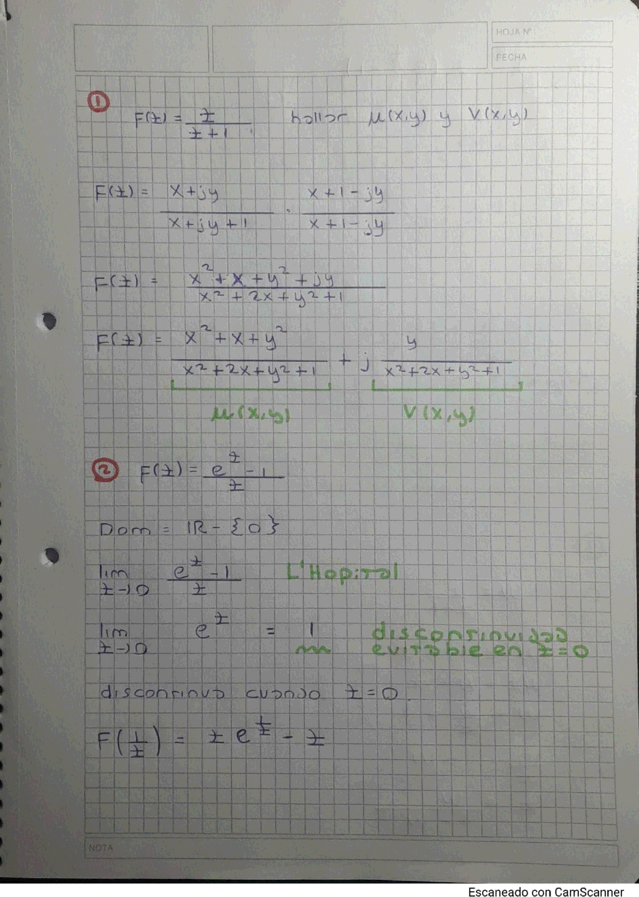 HOJA Nº
FECHA
1
F(z) = z / z+1 hallar μ(x,y) y V(x,y)
F(z) = x+jy / x+jy+1 · x+1-jy / x+1-jy
F(z) = x²+x+y²+jy / x²+2x+y²+1
F(z) = x²+x+y² / x²+2x+y²+1 + j y / x²+2x+y²+1
μ(x,y) V(x,y)
2 F(z) = e^z -1 / z
Dom = IR - {0}
lim z→0 e^z -1 / z L'Hopital
lim z→0 e^z = 1 discontinuidad
evitable en z=0
discontinua cuando z=0.
F(1/z) = z e^1/z - z
NOTA
Escaneado con CamScanner